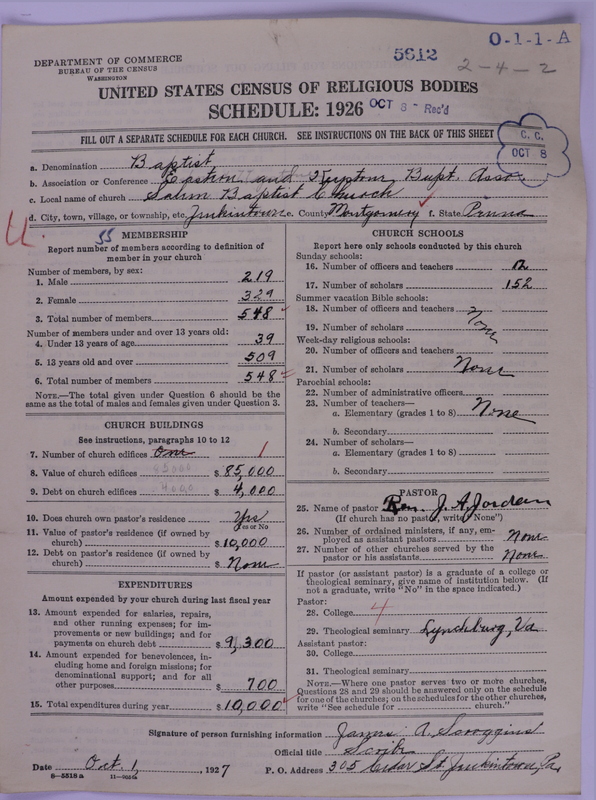 5612
O-1-1-A
2-4-2
DEPARTMENT OF COMMERCE
BUREAU OF THE CENSUS
WASHINGTON
UNITED STATES CENSUS OF RELIGIOUS BODIES
SCHEDULE: 1926
OCT 8 - Rec'd
FILL OUT A SEPARATE SCHEDULE FOR EACH CHURCH. SEE INSTRUCTIONS ON THE BACK OF THIS SHEET
C. C.
OCT 8
a. Denomination Baptist
b. Association or Conference Eastern and Bapt. Asso
c. Local name of church Salem Baptist Church
d. City, town, village, or township, etc. Jenkintown e. County Montgomery f. State Penna
55
MEMBERSHIP
Report number of members according to definition of
member in your church
Number of members, by sex:
1. Male 219
2. Female 329
3. Total number of members 548
Number of members under and over 13 years old:
4. Under 13 years of age 39
5. 13 years old and over 509
6. Total number of members 548
NOTE.—The total given under Question 6 should be the
same as the total of males and females given under Question 3.
CHURCH BUILDINGS
See instructions, paragraphs 10 to 12
7. Number of church edifices One 1
8. Value of church edifices $ 85,000
9. Debt on church edifices $ 4,000
10. Does church own pastor's residence Yes
(Yes or No
11. Value of pastor's residence (if owned by
church) $ 10,000
12. Debt on pastor's residence (if owned by
church) $ None
EXPENDITURES
Amount expended by your church during last fiscal year
13. Amount expended for salaries, repairs,
and other running expenses; for im-
provements or new buildings; and for
payments on church debt $ 9,300
14. Amount expended for benevolences, in-
cluding home and foreign missions; for
denominational support; and for all
other purposes $ 700
15. Total expenditures during year $ 10,000
CHURCH SCHOOLS
Report here only schools conducted by this church
Sunday schools:
16. Number of officers and teachers 12
17. Number of scholars 152
Summer vacation Bible schools:
18. Number of officers and teachers
19. Number of scholars None
Week-day religious schools:
20. Number of officers and teachers
21. Number of scholars None
Parochial schools:
22. Number of administrative officers
23. Number of teachers—
a. Elementary (grades 1 to 8) None
b. Secondary
24. Number of scholars—
a. Elementary (grades 1 to 8)
b. Secondary
PASTOR
25. Name of pastor Rev. J. A. Jordan
(If church has no pastor, write "None")
26. Number of ordained ministers, if any, em-
ployed as assistant pastors None
27. Number of other churches served by the
pastor or his assistants None
If pastor (or assistant pastor) is a graduate of a college or
theological seminary, give name of institution below. (If
not a graduate, write "No" in the space indicated.)
Pastor:
28. College 4
29. Theological seminary Lynchburg, Va
Assistant pastor:
30. College
31. Theological seminary
NOTE.—Where one pastor serves two or more churches,
Questions 28 and 29 should be answered only on the schedule
for one of the churches; on the schedules for the other churches,
write "See schedule for church."
Signature of person furnishing information James A. Scroggins
Official title Scribe
Date Oct. 1, 1927 P. O. Address 305 Cedar St. Jenkintown, Pa.
8-5518 a